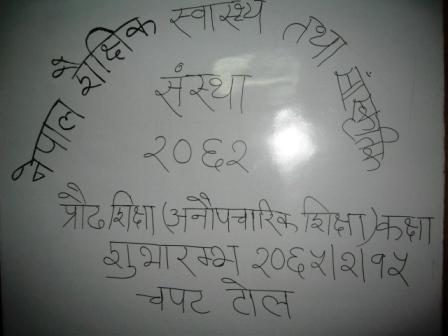 नेपाल शैक्षिक स्वास्थ्य तथा साँस्कृतिक
संस्था
२०६२
प्रौढ शिक्षा (अनौपचारिक शिक्षा) कक्षा
शुभारम्भ २०६५।२।१५
चपट टोल